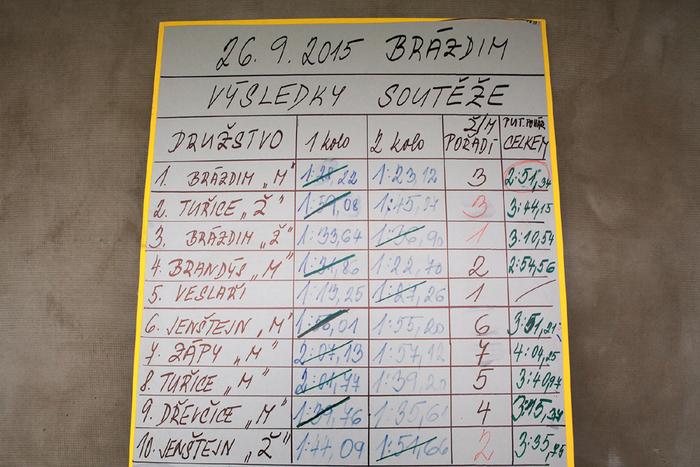 26. 9. 2015 BRÁZDIM
VÝSLEDKY SOUTĚŽE
DRUŽSTVO 1 kolo 2 kolo Ž/M POŘADÍ PUT. POHÁR CELKEM
1. BRÁZDIM „M" 1:28,22 1:23,12 3 2:51,34
2. TUŘICE „Ž" 1:59,08 1:45,27 3 3:44,15
3. BRÁZDIM „Ž" 1:33,64 1:36,90 1 3:10,54
4. BRANDÝS „M" 1:31,86 1:22,70 2 2:54,56
5. VESLAŘI 1:13,25 1:27,26 1
6. JENŠTEJN „M" 1:56,01 1:55,20 6 3:51,21
7. ZÁPY „M" 2:07,13 1:57,12 7 4:04,25
8. TUŘICE „M" 2:01,77 1:39,20 5 3:40,97
9. DŘEVČICE „M" 1:39,76 1:35,61 4
10. JENŠTEJN „Ž" 1:44,09 1:51,66 2 3:35,75